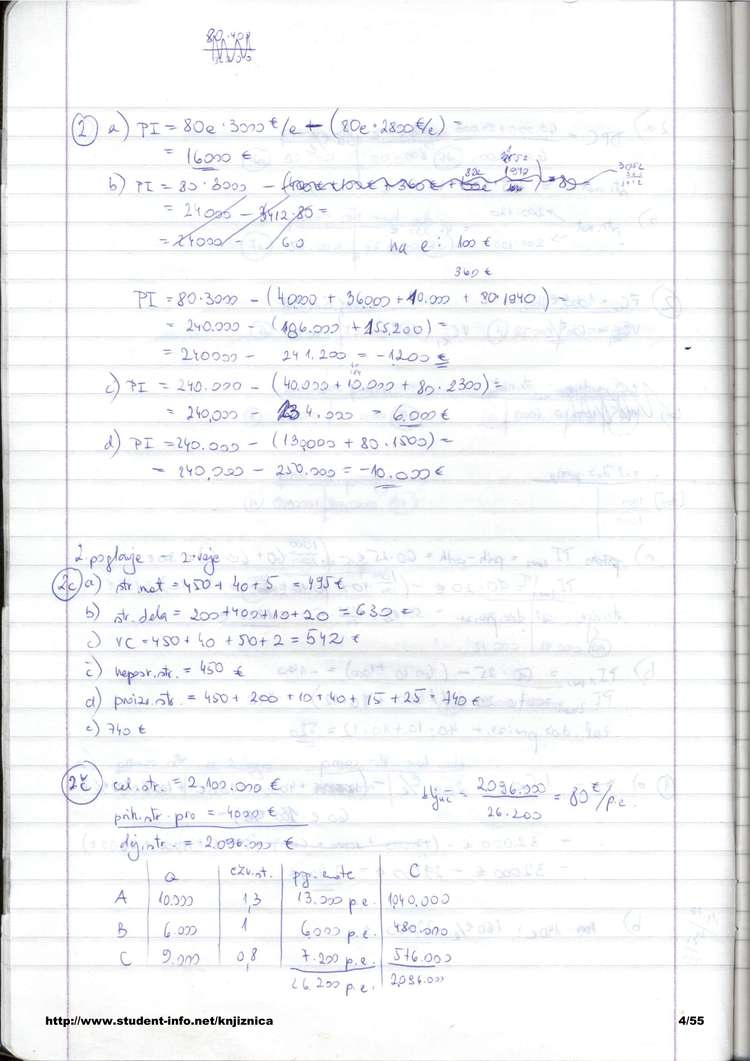 2 a) PI = 80e · 3000 €/e - (80e · 2800 €/e) =
= 16000 €
b) PI = 80 · 3000 -
= 24000 - 3412·80 =
= 24000 - 60
na e: 100 €
360 €
PI = 80·3000 - (40000 + 36000 + 10.000 + 80·1940) =
= 240.000 - (186.000 + 155.200) =
= 240000 - 241.200 = -1200 €
c) PI = 240.000 - (40.000 + 10.000 + 80·2300) =
= 240,000 - 234.000 = 6.000 €
d) PI = 240.000 - (130,000 + 80·1500) =
= 240,000 - 250.000 = -10.000 €
2. poglavje - 2. vaje
2c a) str. mat = 450 + 40 + 5 = 495 €
b) str. dela = 200 + 400 + 10 + 20 = 630 €
c) VC = 450 + 40 + 50 + 2 = 542 €
č) nepos. str. = 450 €
d) proizv. str. = 450 + 200 + 10 + 40 + 15 + 25 = 740 €
e) 740 €
2č cel. str. = 2,100.000 €
prih. str. pro = 4000 €
dej. str. = 2.096.000 €
ključ = 2096.000 / 26.200 = 80 €/p.e.
Q ekv. št. pg. enote C
A 10.000 1,3 13.000 p.e. 1,040,000
B 6.000 1 6,000 p.e. 480.000
C 9.000 0,8 7.200 p.e. 576.000
26.200 p.e. 2,096.000
http://www.student-info.net/knjiznica 4/55